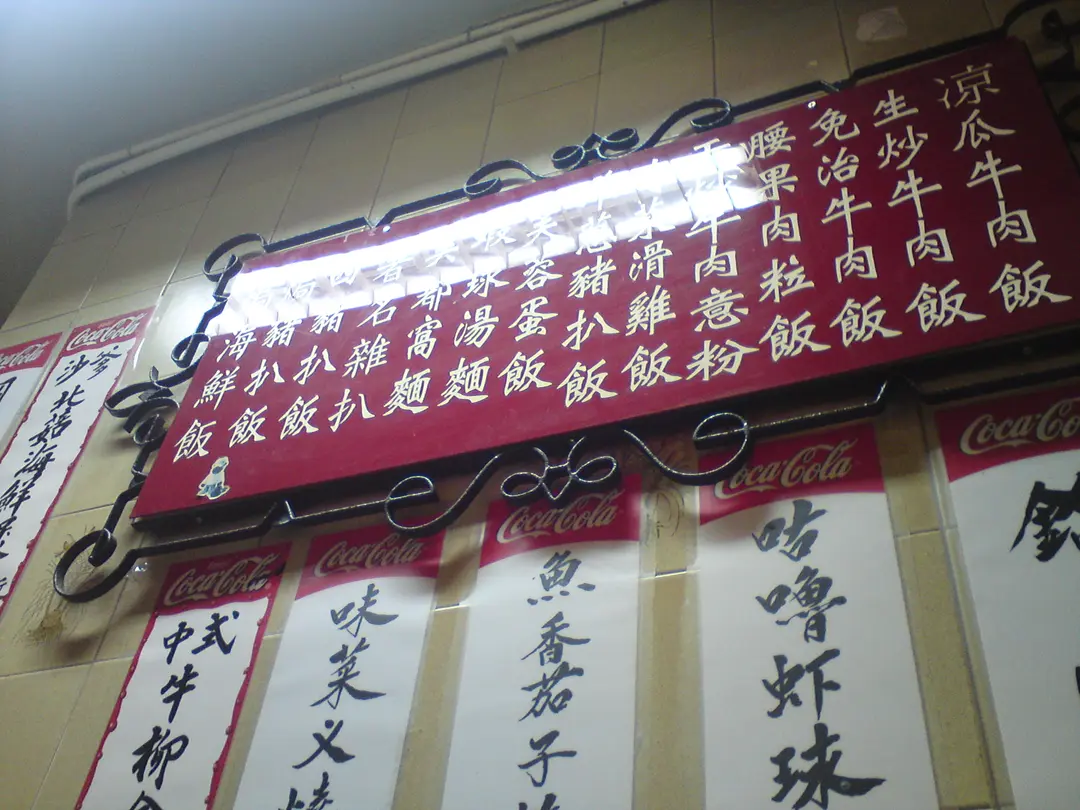 凉瓜牛肉飯
生炒牛肉飯
免治牛肉飯
腰果肉粒飯
牛肉意粉
菜滑雞飯
葱豬扒飯
芙蓉蛋飯
球湯麵
都窩麵
名雜扒
豬扒飯
豬扒飯
海鮮飯
Coca-Cola
Coca-Cola
咕嚕蝦球
Coca-Cola
魚香茄子
Coca-Cola
味菜义燒
Coca-Cola
中式牛柳
Coca-Cola
沙爹北菇海鮮